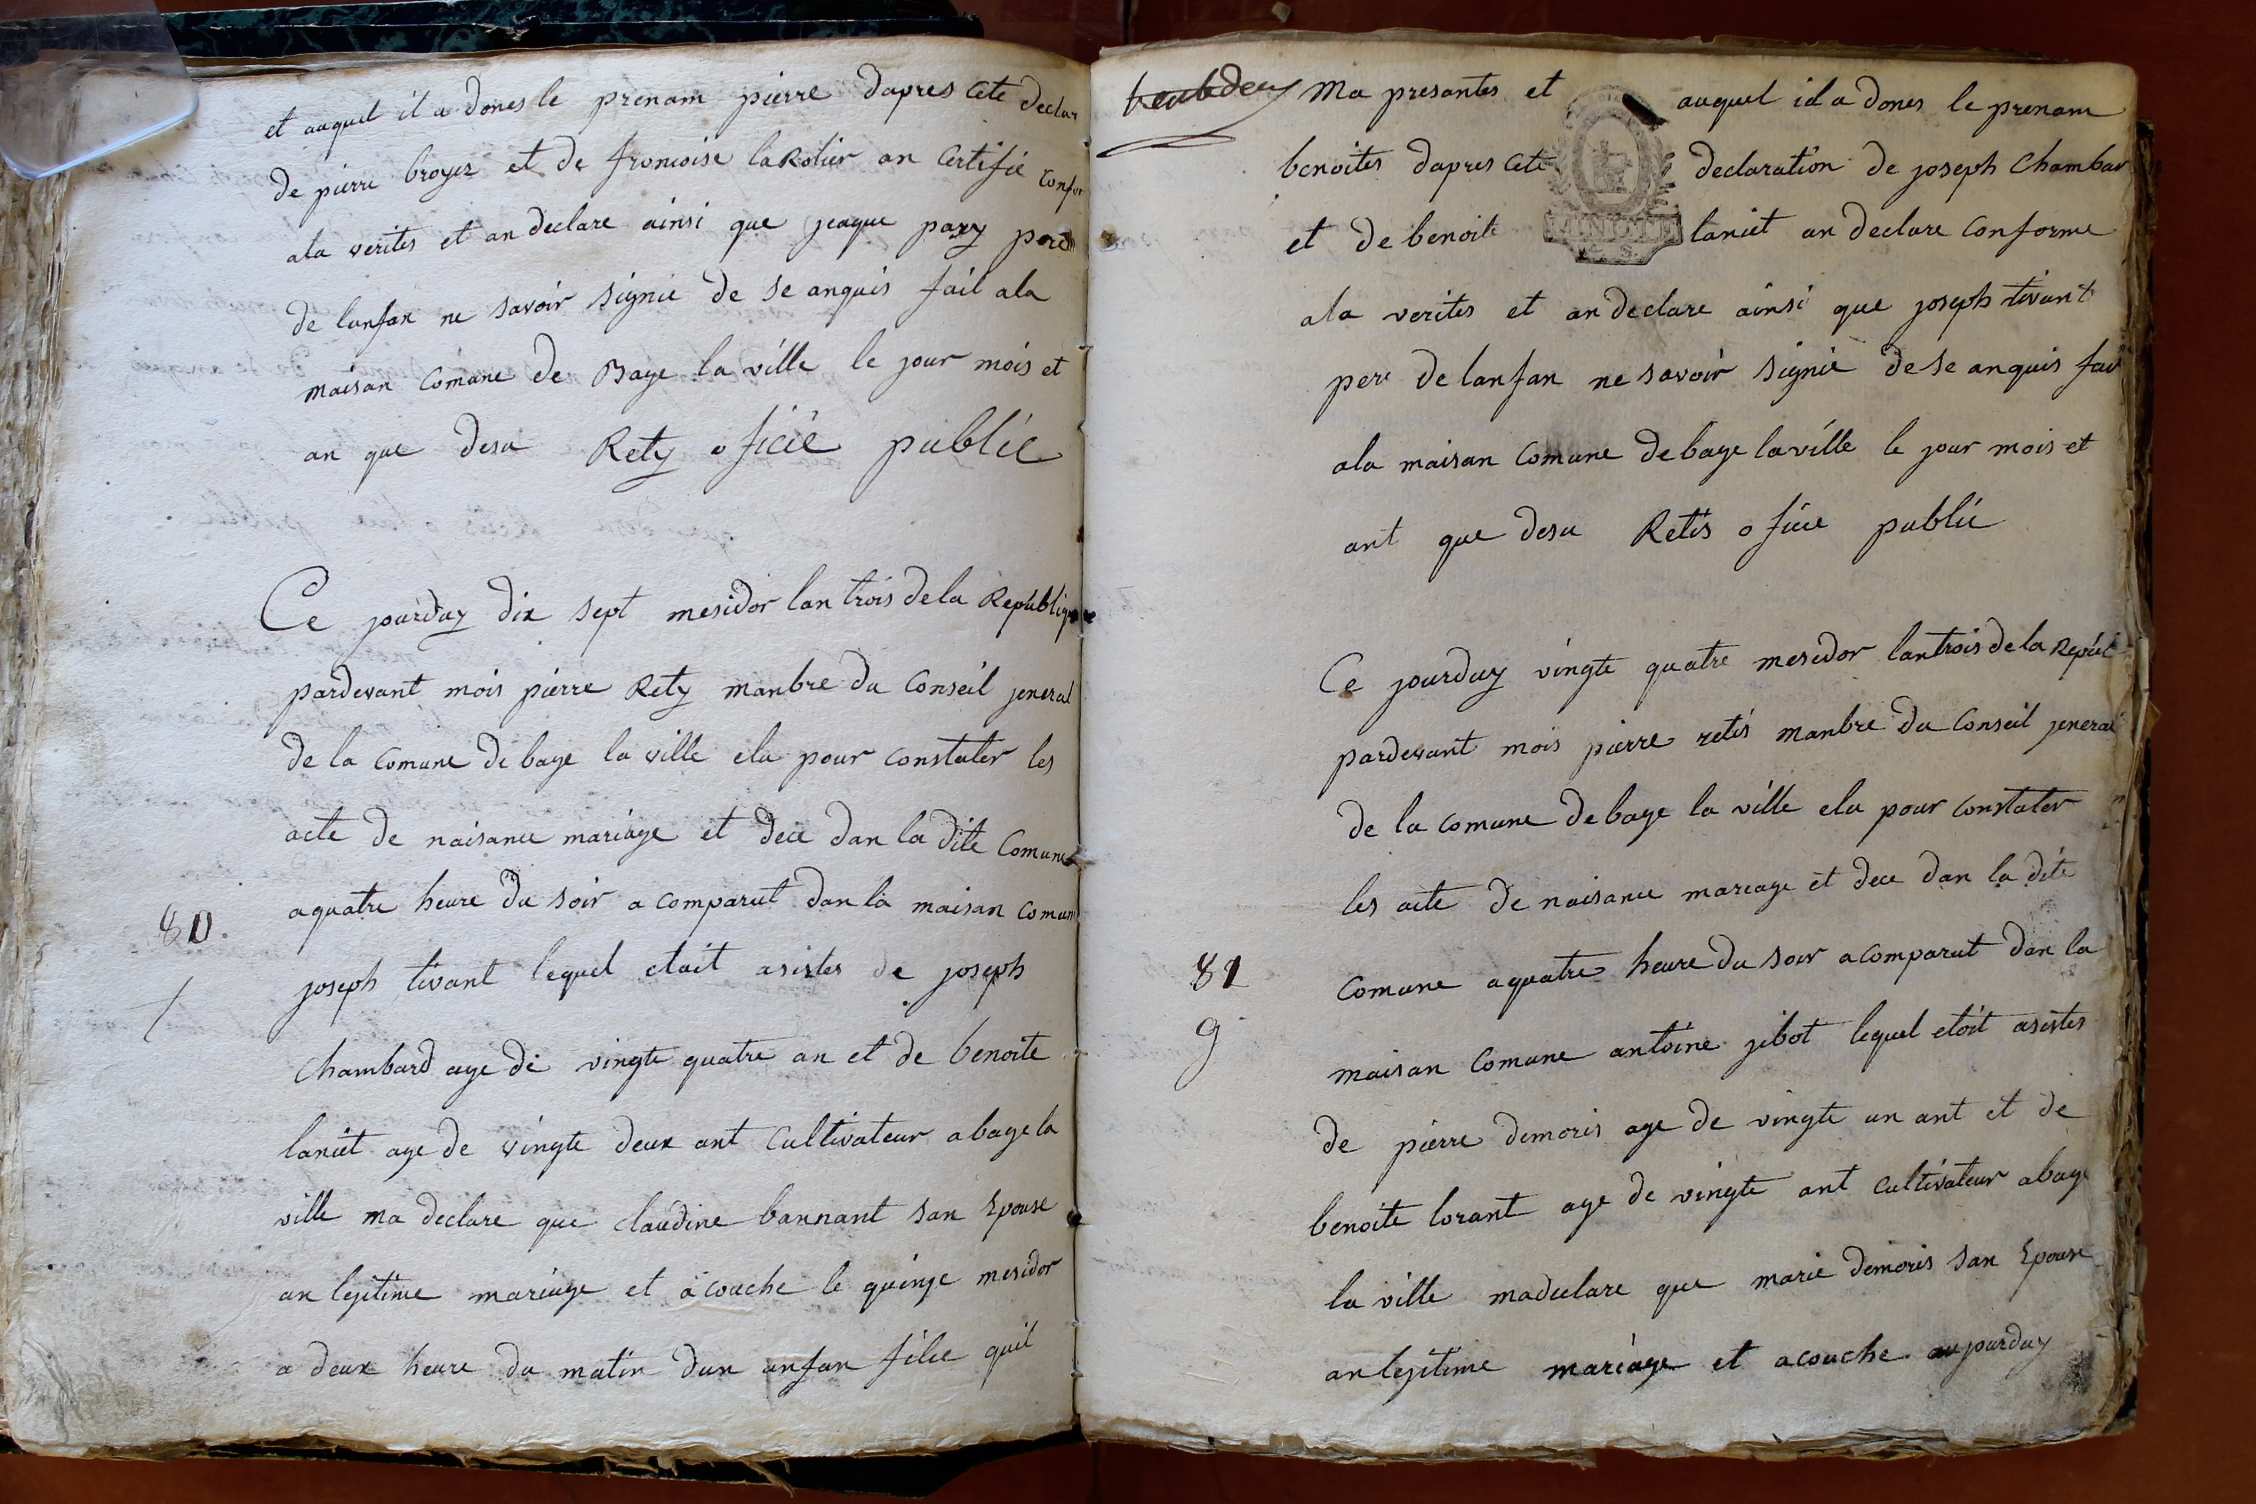 et auquel il a dones le prenam pierre dapres cete declar
de pierre broyer et de francoise laRotier an certifie confor
ala verites et an declare ainsi que jeaque pary pere
de lanfan ne savoir signie de se anquis fait ala
maisan comune de Bage la ville le jour mois et
an que desu Rety oficié publie
Ce jourduy dix sept mesidor lan trois de la Republique
pardevant mois pierre Rety manbre du Conseil jeneral
de la comune de bage la ville elu pour constater les
acte de naisance mariage et dece dan la dite comune
80. aquatre heure du soir a comparut dan la maisan comun
joseph tivant lequel etait asistes de joseph
chambard age de vingte quatre an et de benoite
laniet age de vingte deux ant cultivateur abage la
ville ma declare que claudine bannant san Epouse
an legitime mariage et acouche le quinze mesidor
a deux heure du matin dun anfan filie quil
ma presantes et auquel id a dones le prenam
benoites dapres cete declaration de joseph Chambar
et de benoite laniet an declare conforme
MINUTE
ala verites et an declare ainsi que joseph tivant
pere de lanfan ne savoir signie de se anquis fait
ala maisan comune de bage laville le jour mois et
ant que desu Retis oficie publie
Ce jourduy vingte quatre mesidor lantrois de la Republ
pardevant mois pierre retis manbre du Conseil jeneral
de la comune de bage la ville elu pour constater
les acte de naisance mareage et dece dan la dite
81 comune aquatre heure du soir acomparut dan la
g maisan comune antoine jibot lequel etoit asistes
de pierre demoris age de vingte un ant et de
benoite lorant age de vingte ant cultivateur abage
la ville madeclare que marie demoris san Epouse
an legitime mariage et acouche aujourduy